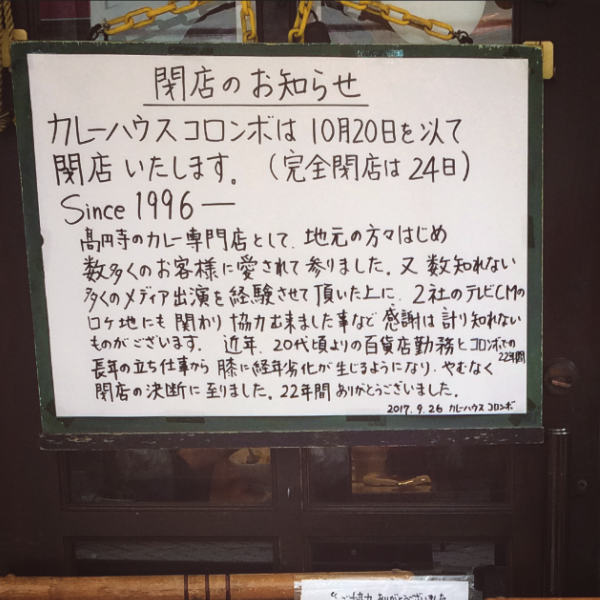 閉店のお知らせ
カレーハウスコロンボは10月20日を以て
閉店いたします。（完全閉店は24日）
Since 1996 —
高円寺のカレー専門店として、地元の方々はじめ
数多くのお客様に愛されて参りました。又 数知れない
多くのメディア出演を経験させて頂いた上に、2社のテレビCMの
ロケ地にも関わり協力出来ました事など感謝は計り知れない
ものがございます。近年、20代頃よりの百貨店勤務とコロンボでの22年間
長年の立ち仕事から膝に経年劣化が生じるようになり、やむなく
閉店の決断に至りました。22年間ありがとうございました。
2017.9.26 カレーハウスコロンボ
ありがとうございました